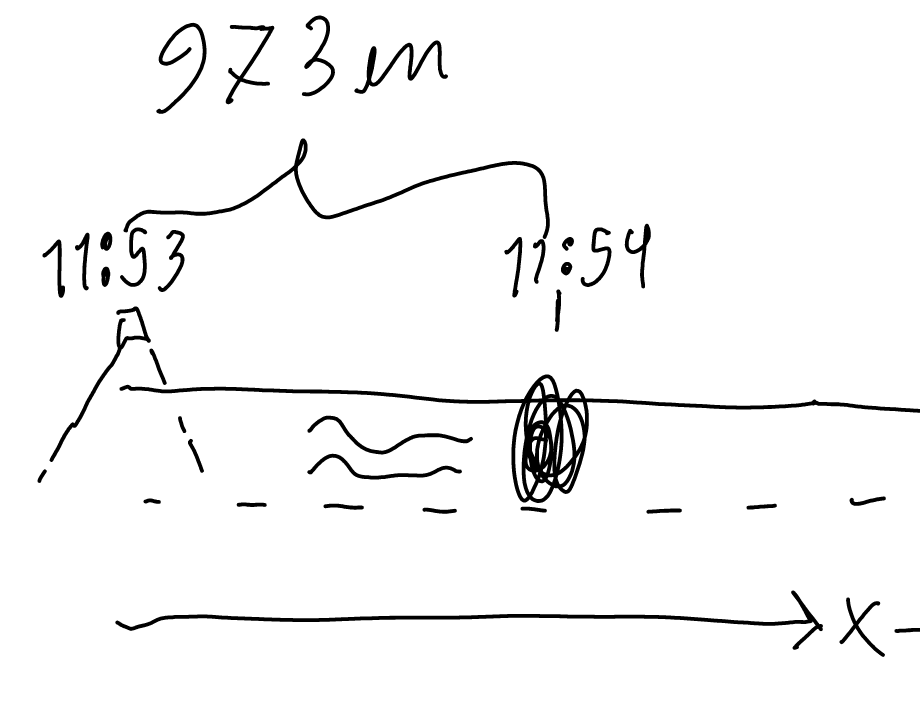 973 m
11:53 11:54
X-